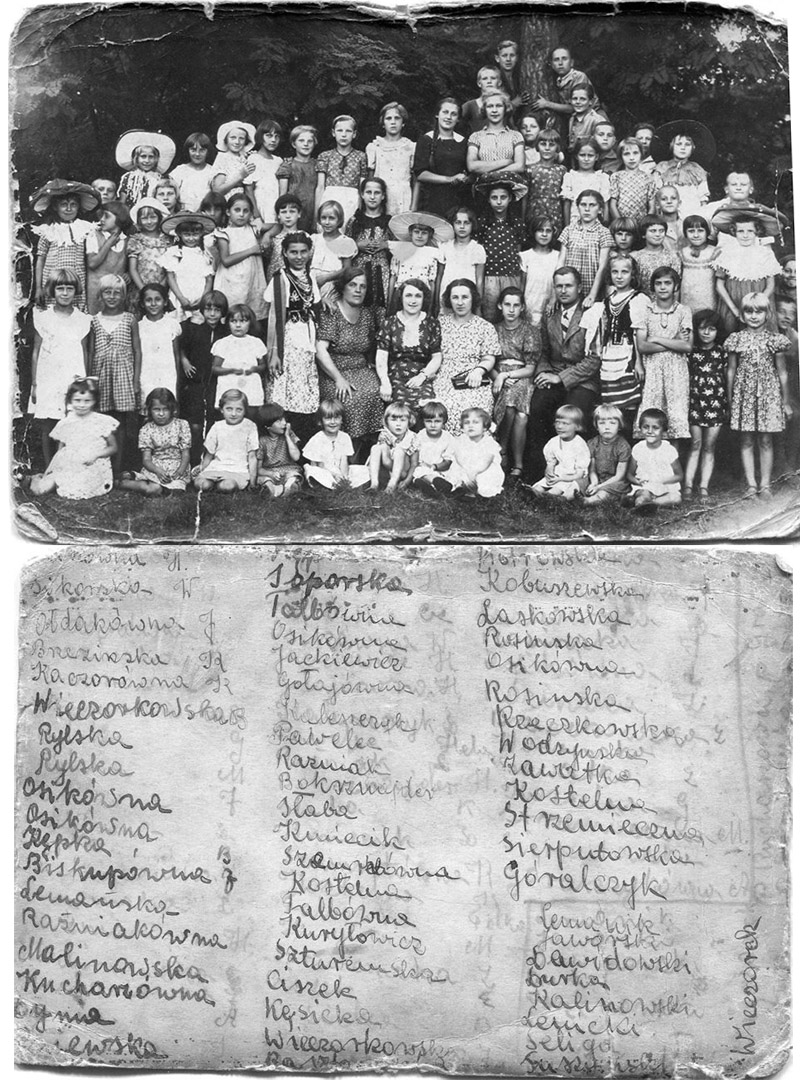 Sikorska W
Ołdakówna J
Brezinska R
Kaczorówna R
Wieczorkowska R
Rylska
Rylska
Osikówna J
Osikówna
Kępka B
Biskupówna J
Lemańska
Raźniakówna
Malinowska
Kucharzówna
Dymna
Toporska
Talbówna
Osikówna
Jackiewicz
Gołajówna
Pawelec
Raźniak
Boksznajder
Słaba
Kmiecik
Kostelna
Galbówna
Kuryłowicz
Ciszek
Kęsicka
Wieczorkowska
Piotrowska
Kobuszewska
Laskowska
Rosinska
Osikówna
Rosinska
Rzeczkowska
Wodzyńska
Zawatka
Kostelna
Strzemieczna
Sierputowska
Góralczyk
Jaworski
Dawidowski
Burka
Kalinowski
Seliga
Wieczorek